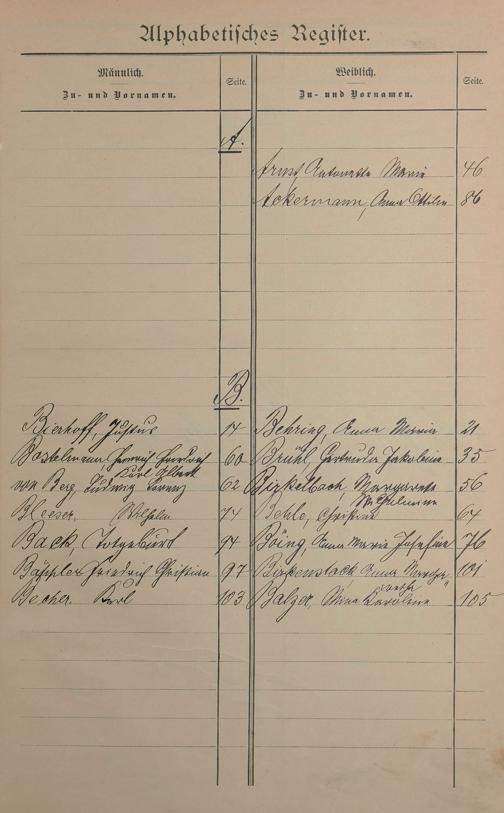 Alphabetisches Register.
Männlich.
Zu- und Vornamen.
Seite.
Weiblich.
Zu- und Vornamen.
Seite.
A.
Arns, Antonette Maria 46
Ackermann, Anna Ottilie 86
B.
Bierhoff, Justus 14 Behring, Anna Maria 21
Bostelmann Heinrich Friedrich 60 Brühl Gertrudis Jakobine 35
Karl Albert
von Berg, Ludwig 62 Birkelbach, Margareta 56
Wilhelmine
Bleeser, Wilhelm 74 Behle, Christine 64
Back, Totgeburt 94 Böing, Anna Maria Josefine 76
Friedrich Christian 97 Birkenstock Anna Martha 101
Becher, Karl 103 Balzer, Mina Karoline 105